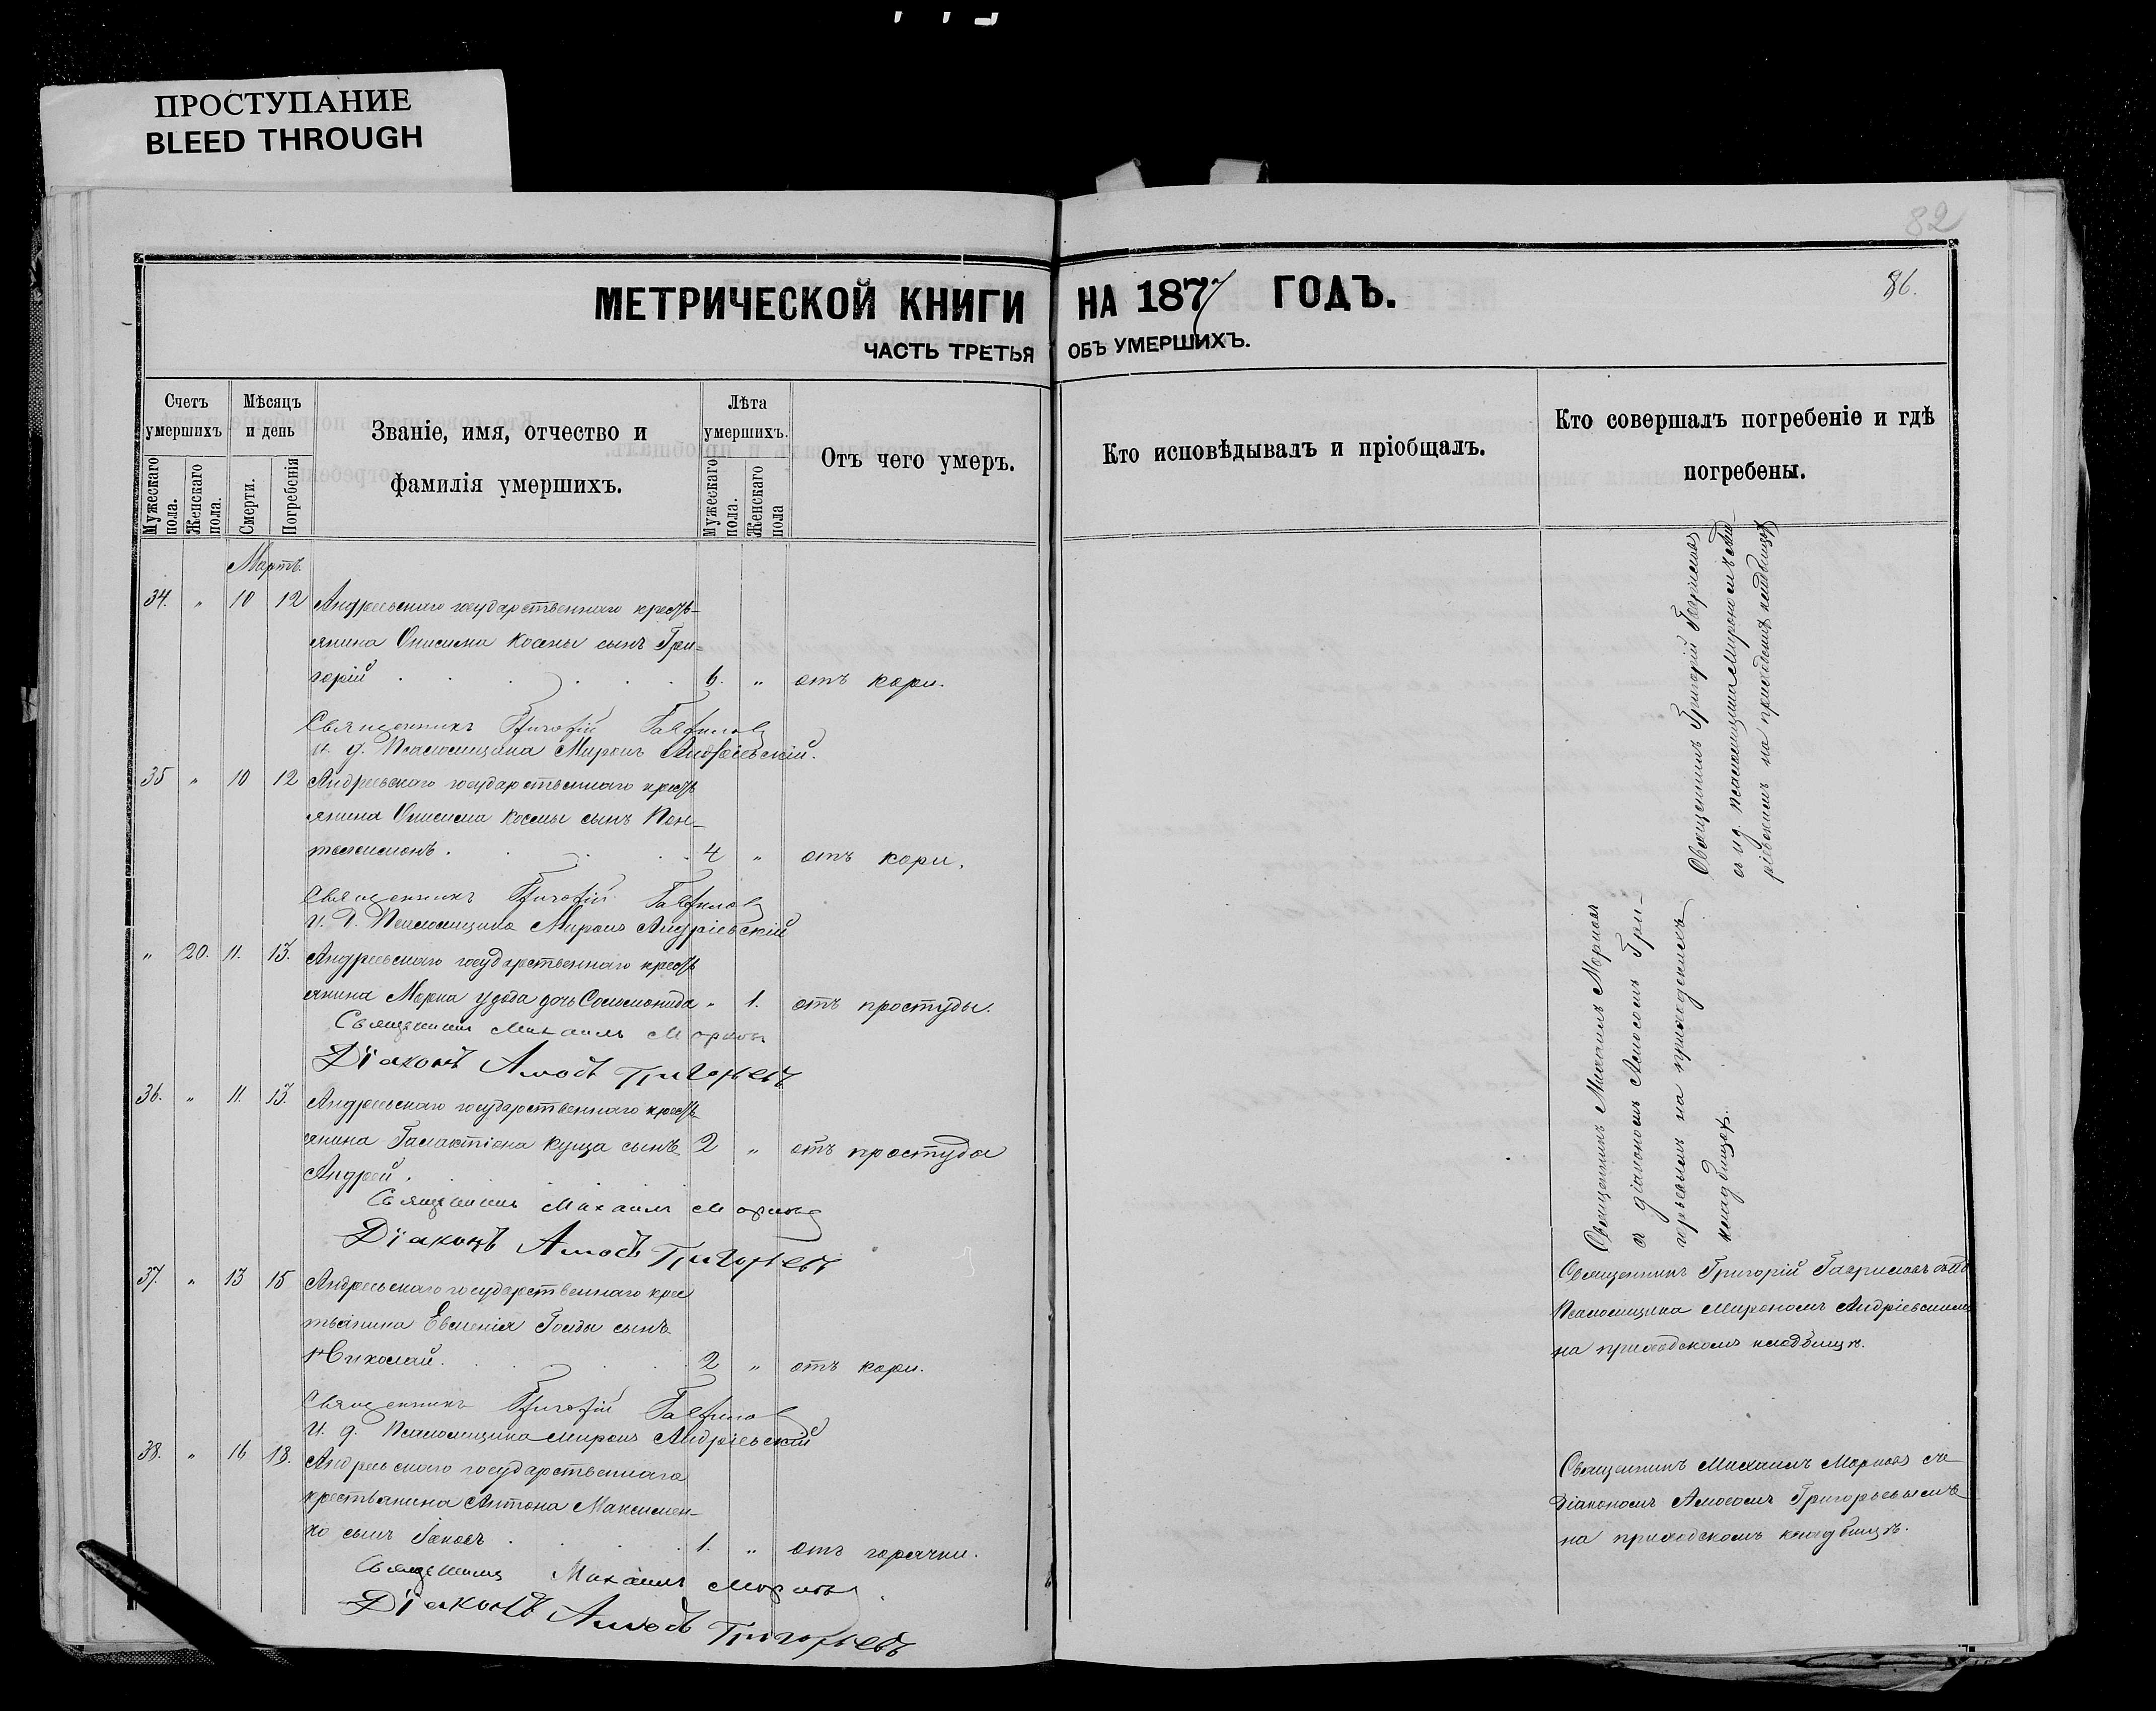 ПРОСТУПАНИЕ
BLEED THROUGH
82
86.
МЕТРИЧЕСКОЙ КНИГИ НА 1877 ГОДЪ.
ЧАСТЬ ТРЕТЬЯ ОБЪ УМЕРШИХЪ.
Счетъ умершихъ
Мѣсяцъ и день
Званіе, имя, отчество и фамилія умершихъ.
Лѣта умершихъ.
Отъ чего умеръ.
Кто исповѣдывалъ и пріобщалъ.
Кто совершалъ погребеніе и гдѣ погребены.
Мужескаго пола.
Женскаго пола.
Смерти.
Погребенія
Мужескаго пола.
Женскаго пола
Мартъ.
34. " 10 12 Андреевскаго государственнаго кресть-
янина Онисима Косты сынъ Гри-
горій 6. " отъ кори.
Священникъ Григорій Гаврилов
и. д. Псаломщика Миронъ Андріевскій.
35 " 10 12 Андреевскаго государственнаго кресть
янина Онисима Косты сынъ Пан-
телеимонъ. 4 " отъ кори.
Священникъ Григорій Гаврилов
И. д. Псаломщика Миронъ Андріевскій
" 20. 11. 13. Андреевскаго государственнаго кресть
янина Марка Удода дочь Соломонида " 1. отъ простуды.
Священник Михаилъ
Діаконъ Амосъ Григорьевъ
36. " 11. 13. Андреевскаго государственнаго кресть
янина Галактіона Куща сынъ 2 " отъ простуды
Андрей.
Священник Михаилъ
Діаконъ Амосъ Григорьевъ
37. " 13 15 Андреевскаго государственнаго крес
тьянина Евменія сынъ
Николай. 2 " отъ кори.
Священникъ Григорій Гаврилов
И. д. Псаломщика Миронъ Андріевскій
38. " 16 18. Андреевскаго государственнаго
крестьянина Антона Максимен-
ко сынъ Іаковъ 1. " отъ горячки.
Священник Михаилъ
Діаконъ Амосъ Григорьевъ
Священникъ Григорій Гавриловъ
съ и д. псаломщика Мирономъ Анд-
ріевскимъ на приходскомъ кладбищѣ
Священникъ Михаилъ
съ діакономъ Амосомъ Гри-
горьевымъ на приходскомъ
кладбищѣ.
Священникъ Григорій Гавриловъ
Псаломщика Мирономъ Андріевскимъ
на приходскомъ кладбищѣ.
Священникъ Михаилъ съ
Діакономъ Амосомъ Григорьевымъ
на приходскомъ кладбищѣ.